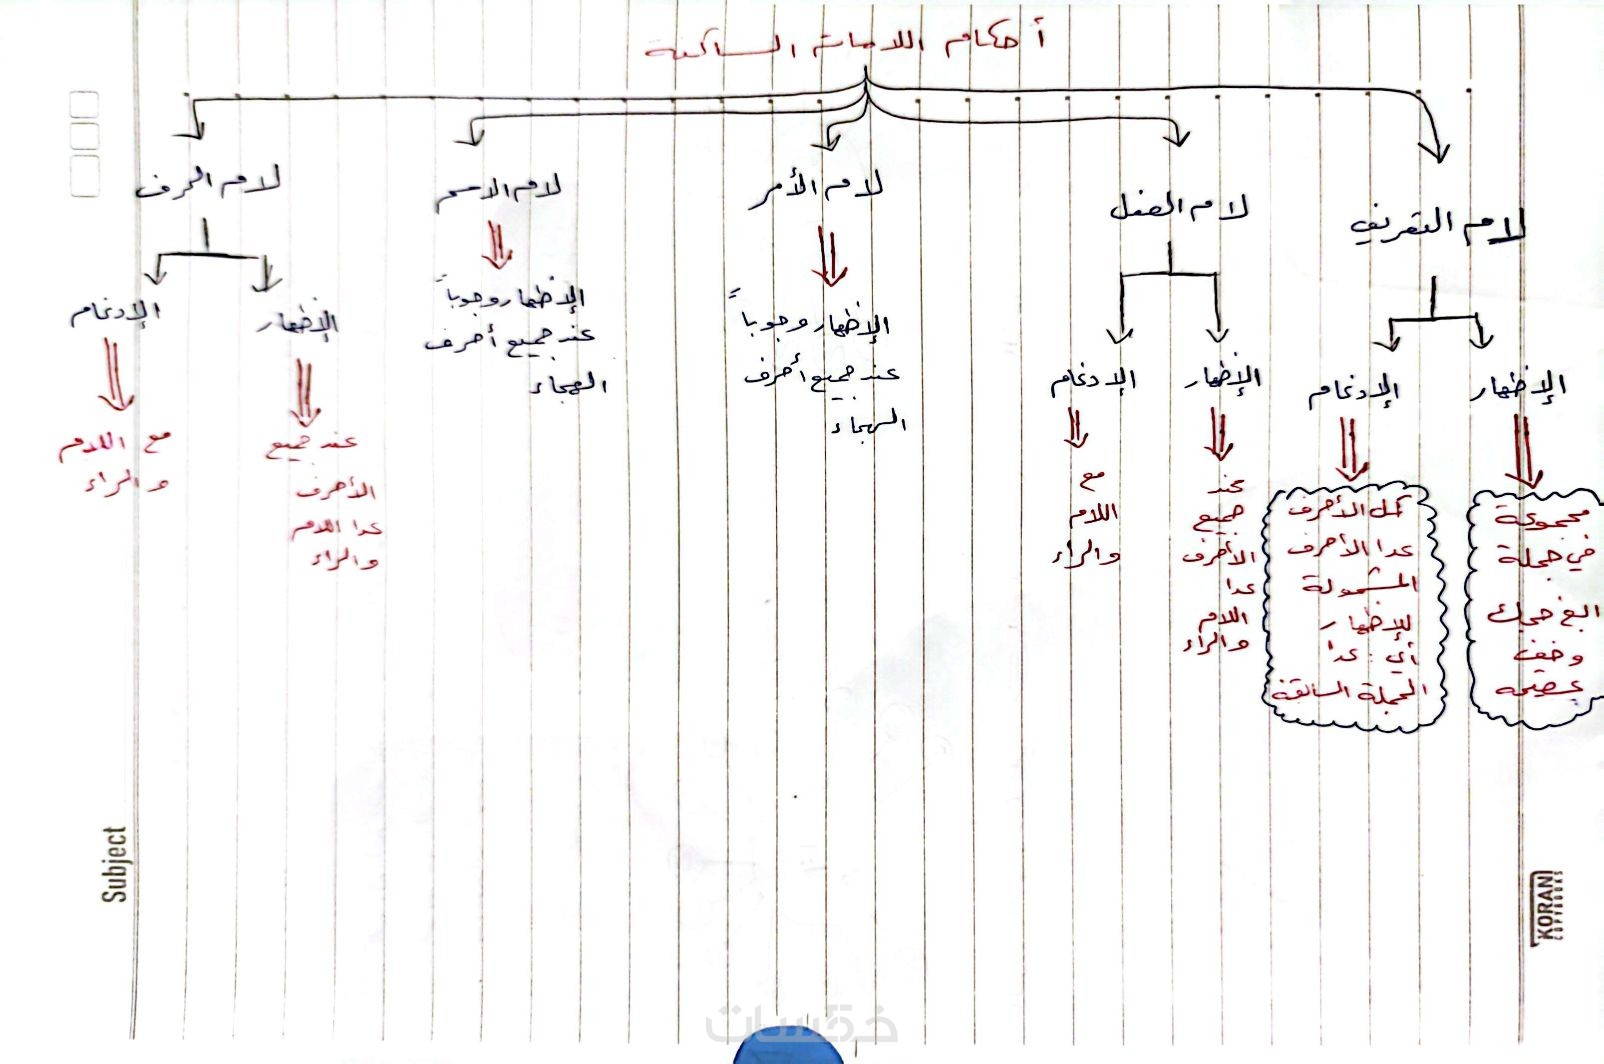 أحكام اللامات الساكنة
لام التعريف
الإظهار
مجموعة
في جملة
ابغ حجك
وخف
عقيمه
الإدغام
كل الأحرف
عدا الأحرف
المشمولة
للإظهار
أي: عدا
الجملة السابقة
لام الفعل
الإظهار
عند
جميع
الأحرف
عدا
اللام
والراء
الإدغام
مع
اللام
والراء
لام الأمر
الإظهار وجوباً
عند جميع أحرف
الهجاء
لام الاسم
الإظهار وجوباً
عند جميع أحرف
الهجاء
لام الحرف
الإظهار
عند جميع
الأحرف
عدا اللام
والراء
الإدغام
مع اللام
والراء
Subject
KORAN
COPYBOOKS
خمسات